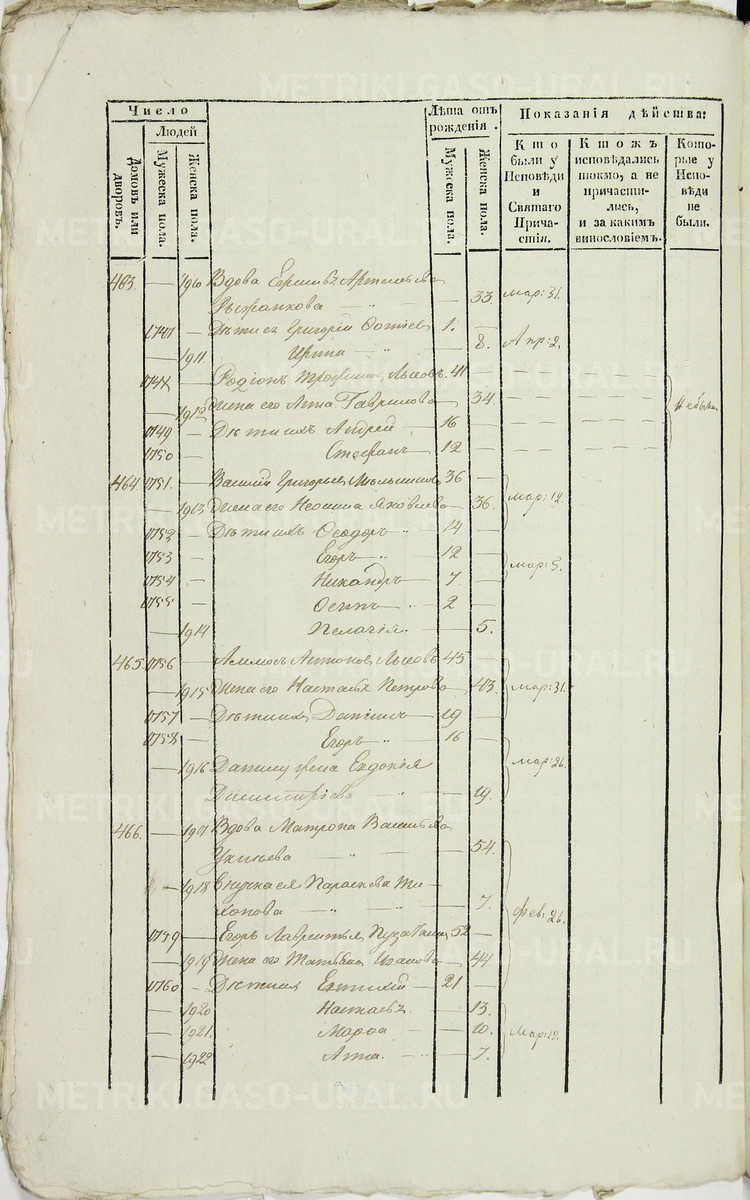 Число
Людей
Домовъ или дворовъ.
Мужеска пола.
Женска пола.
Лѣта отъ
рожденія.
Мужеска пола.
Женска пола.
Показанія дѣйства:
Кто
были у
Исповѣди
и
Святаго
Прича-
стія.
Ктожъ
исповѣдались
токмо, а не
причасти-
лись,
и за какимъ
винословіемъ.
Кото-
рые у
Испо-
вѣди
не
были.
463. — 1910 Вдова
— 33. Мар: 31.
1747 — Дѣти ея Григорій 1. —
— 1911 Ирина — 8. Апр: 2.
Родіонъ 41 —
— 1912 Жена его Анна Гаврилова — 34.
1749 — Дѣти ихъ Андрей 16 —
1750 — Стефанъ 12 —
Небыли
464. 1751. — Василій Григорьевъ 36 —
— 1913 Жена его Яковлева — 36. Мар: 12.
1752 — Дѣти ихъ Ѳеодоръ 14 —
1753 — Егоръ 12 —
1754 — Никандръ 7 — Мар: 5.
1755 — Осипъ 2 —
— 1914 Пелагія — 5.
465. 1756 — Антоновъ 45 —
— 1915 Жена его Настасья Петрова — 43. Мар: 31.
1757 — Дѣти ихъ Даніилъ 19 —
1758 — Егоръ 16 —
— 1916 Данилу жена Евдокія Мар: 26.
Димитріева — 19.
466. — 1917 Вдова Матрона Васильева
— 54.
— 1918 внучка ея Параскева Ти-
хонова — 7. Фев: 26.
1759 — Егоръ Лаврентьевъ 52 —
— 1919 Жена его Татьяна Иванова — 44
1760 — Дѣти ихъ Евтихій 21 —
— 1920 Настасья — 13.
— 1921. Марѳа — 10. Мар: 12.
— 1922 Анна. — 7.
METRIKI.GASO-URAL.RU